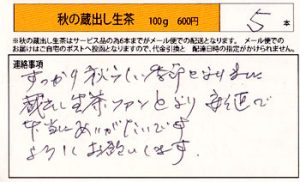 秋の蔵出し生茶 100g 600円 5 本
※秋の蔵出し生茶はサービス品の為6本までがメール便での配送となります。 メール便での
お届けはご自宅のポストへ投函となりますので、代金引換と 配達日時の指定がかけられません。
連絡事項
すっかり秋らしい季節となりました
蔵出し生茶ファンとより
本当にありがたいです
よろしくお願いします。